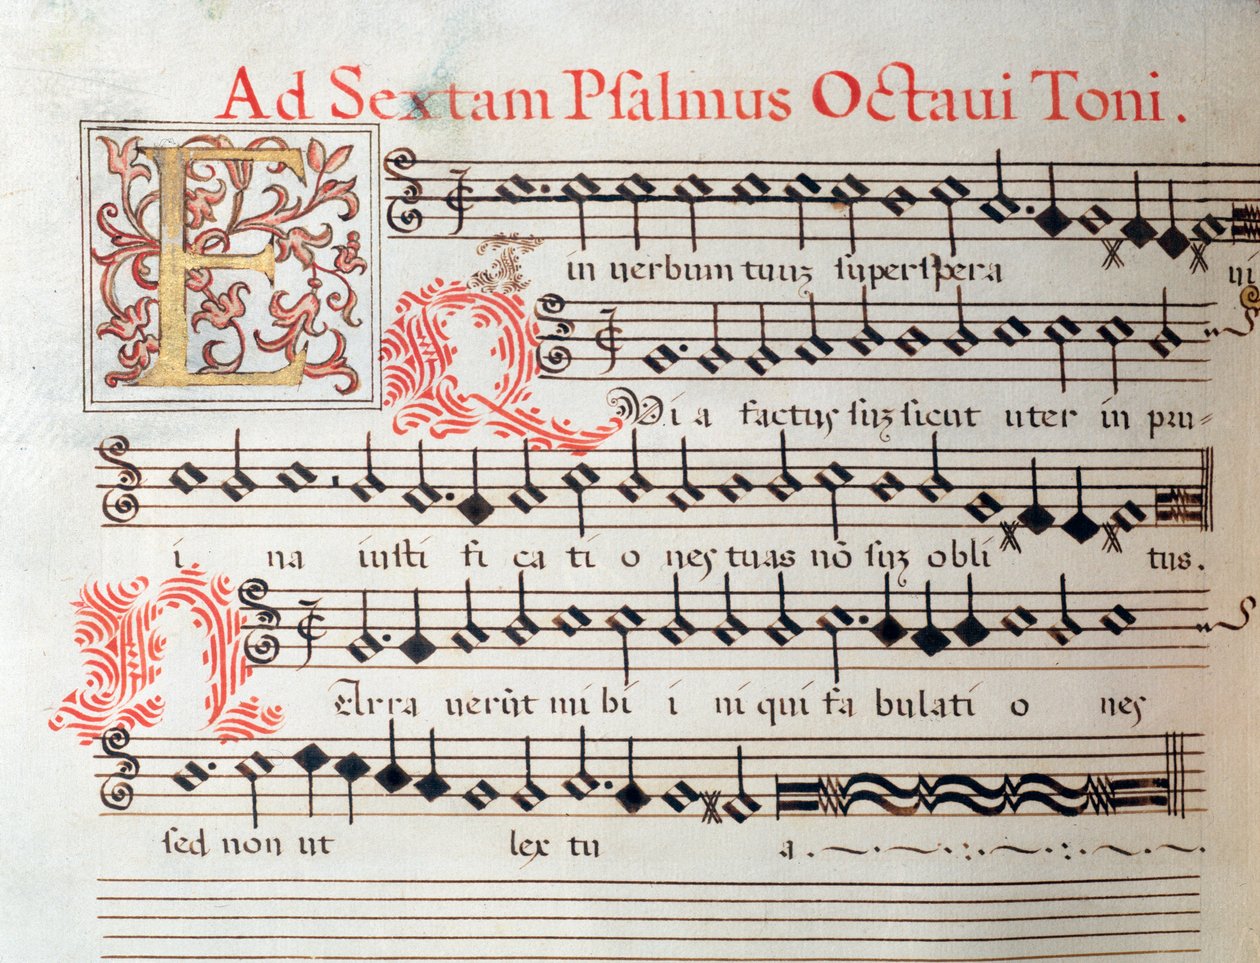 Ad Sextam Psalmus Octaui Toni.
ET in verbum tuuz super spera ui
QUia factus suz sicut uter in pru-
i na iusti fi ca ti o nes tuas nō suz obli tus.
NArra uerūt mi hi i ni qui fa bulati o nes
sed non ut lex tu a.